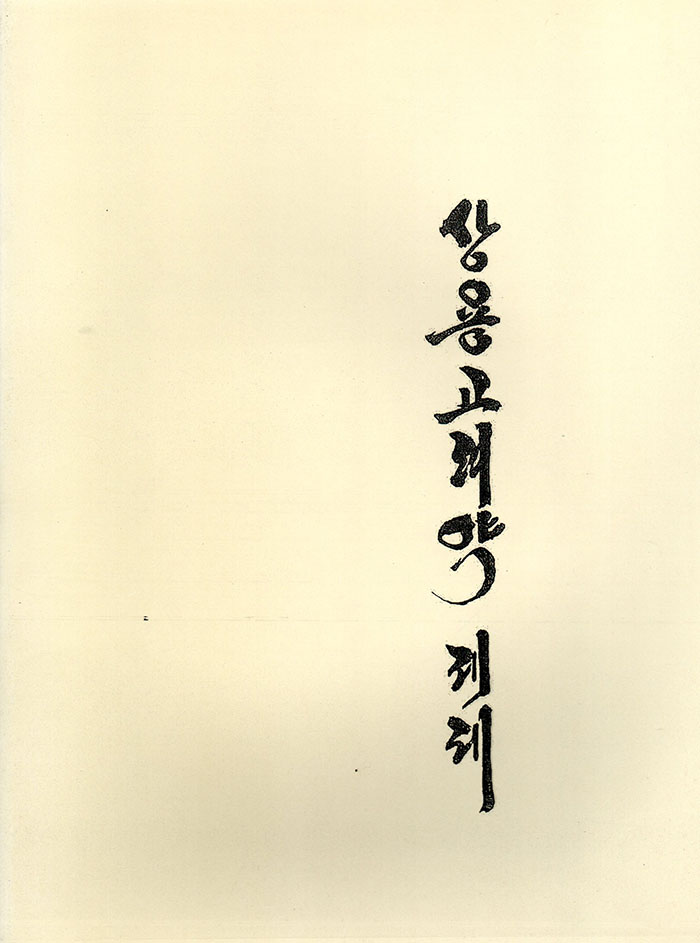 상용고려약 제제